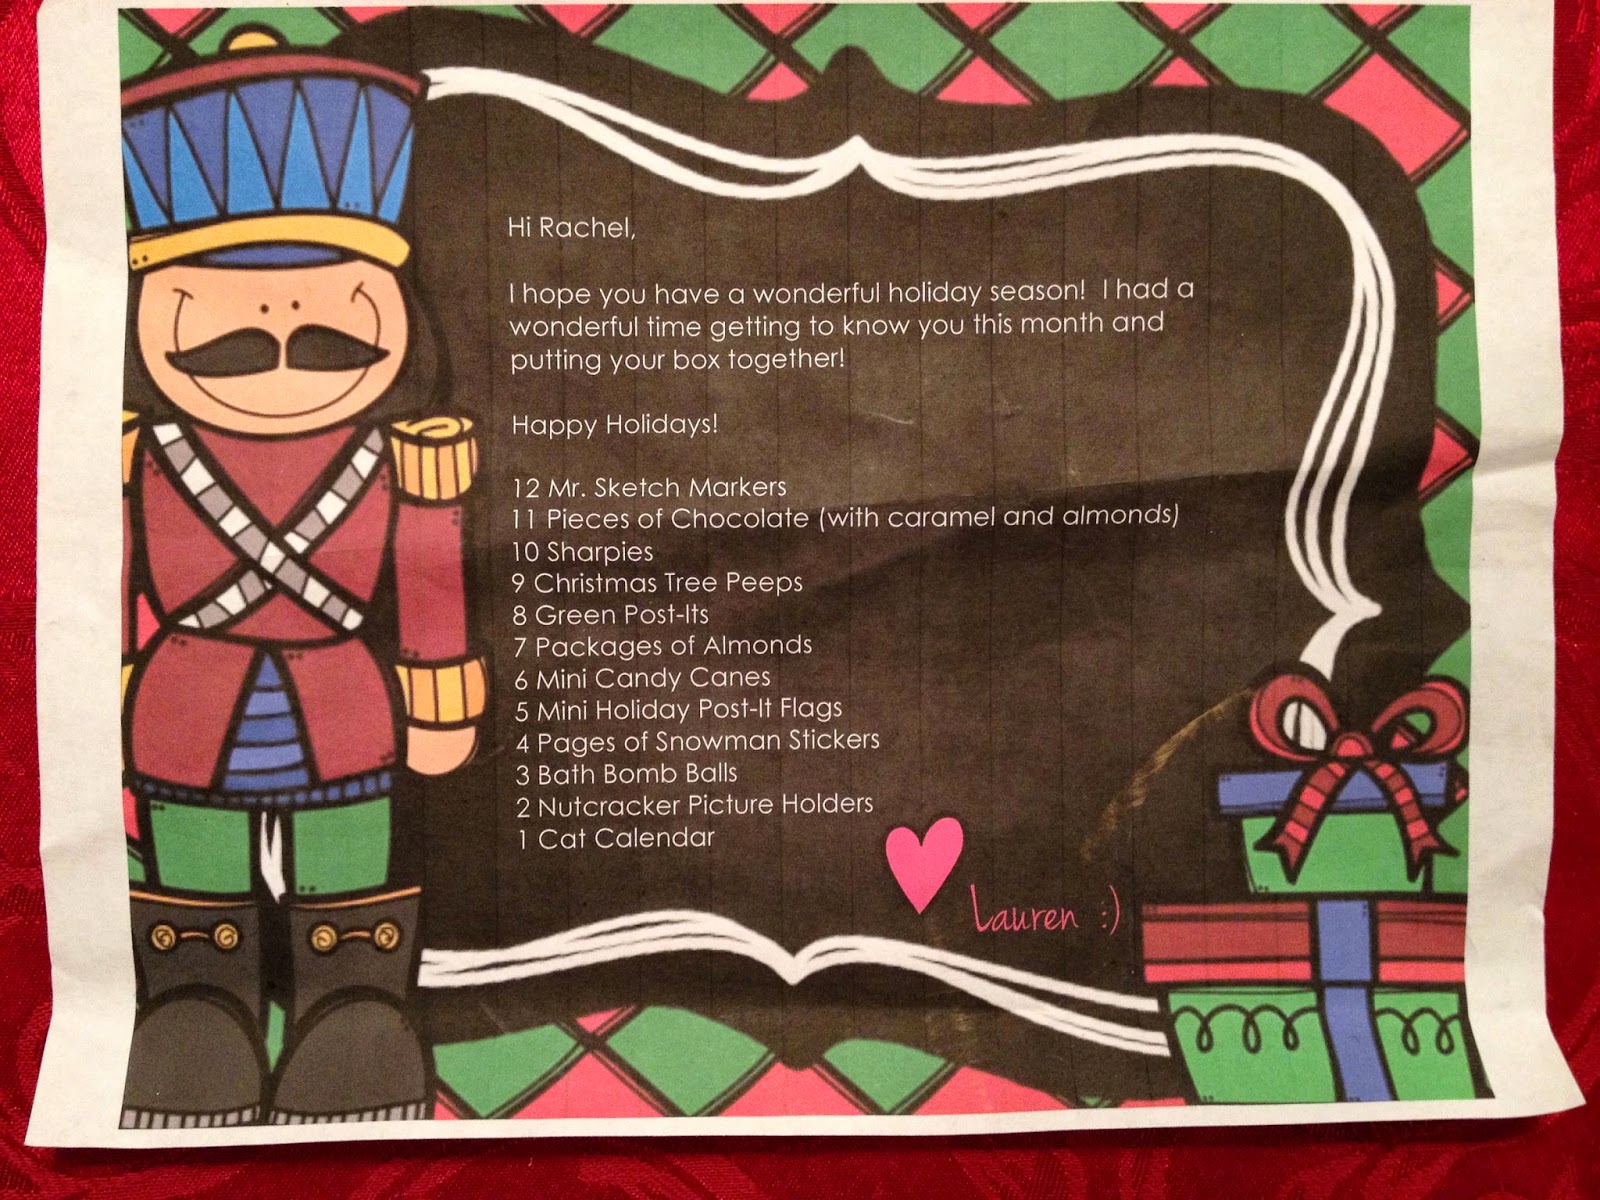 Hi Rachel,
I hope you have a wonderful holiday season!  I had a
wonderful time getting to know you this month and
putting your box together!
Happy Holidays!
12 Mr. Sketch Markers
11 Pieces of Chocolate (with caramel and almonds)
10 Sharpies
9 Christmas Tree Peeps
8 Green Post-Its
7 Packages of Almonds
6 Mini Candy Canes
5 Mini Holiday Post-It Flags
4 Pages of Snowman Stickers
3 Bath Bomb Balls
2 Nutcracker Picture Holders
1 Cat Calendar
Lauren :)